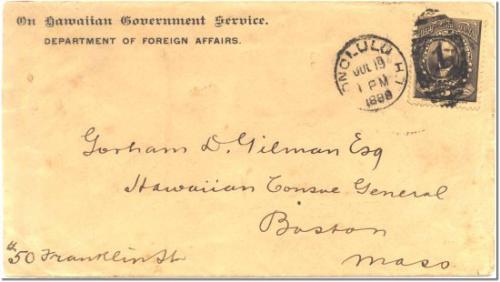 On Hawaiian Government Service.
DEPARTMENT OF FOREIGN AFFAIRS.
HONOLULU H.I.
JUL 19
1 PM
1888
Gorham D. Gilman Esq
Hawaiian Consue General
Boston
Mass
#50 Franklin St